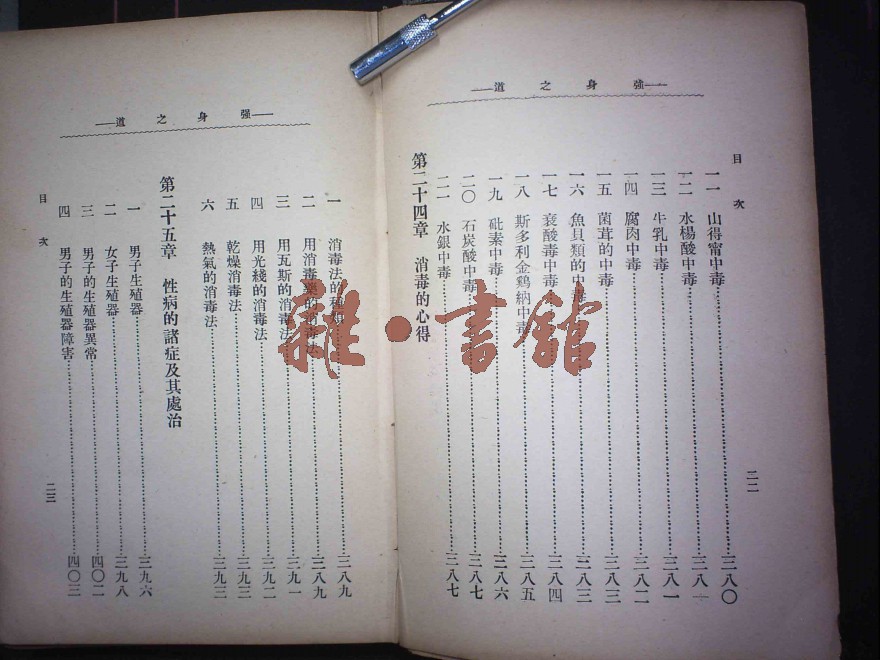 強身之道
目次
一一 山得甯中毒 三八〇
一二 水楊酸中毒 三八一
一三 牛乳中毒 三八一
一四 腐肉中毒 三八二
一五 菌茸的中毒 三八三
一六 魚貝類的中毒 三八三
一七 蓚酸毒中毒 三八四
一八 斯多利金鷄納中毒 三八五
一九 砒素中毒 三八六
二〇 石炭酸中毒 三八七
二一 水銀中毒 三八七
第二十四章 消毒的心得
二二
强身之道
一 消毒法的種類 三八九
二 用消毒藥的消毒法 三八九
三 用瓦斯的消毒法 三九一
四 用光綫的消毒法 三九二
五 乾燥消毒法 三九三
六 熱氣的消毒法 三九三
第二十五章 性病的諸症及其處治
一 男子生殖器 三九六
二 女子生殖器 三九八
三 男子的生殖器異常 四〇二
四 男子的生殖器障害 四〇三
目次
二三
雜·書館